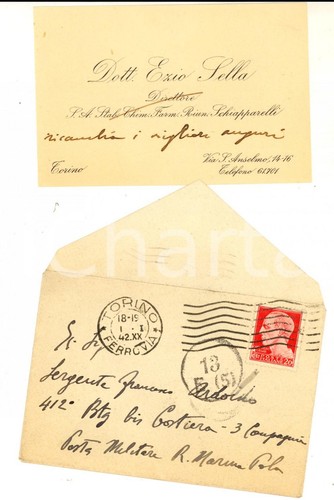 Dott. Ezio Sella
Direttore
S. A. Stab. Chim. Farm. Riun. Schiapparelli
ricambia i migliori auguri
Torino
Via S. Anselmo, 14-16
Telefono 61701
TORINO
18-19
1 - I
42.XX
FERROVIA
13
(5)
Sergente Francesco
412° Btg bis Costiera - 3 Compagnia
Posta Militare R. Marina Pola